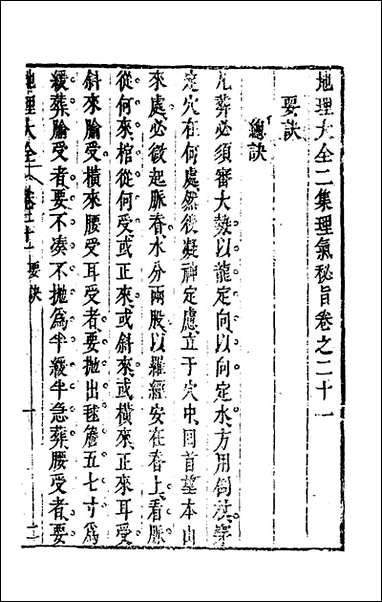 地理大全二集理氣秘旨卷之二十一
要訣
總訣
凡葬必須審大勢以龍定向以向定水方用倒杖
定穴在何處然後凝神定慮立于穴中回首望本山
來處必微起脈脊水分兩股以羅經安在脊上看脈
從何來棺從何受或正來或斜來或橫來正來耳受
斜來腧受橫來腰受耳受者要拋出毬簷五七寸爲
緩葬腧受者要不湊不拋爲半緩半急葬腰受者要
地理大全 卷二十一 要訣 一